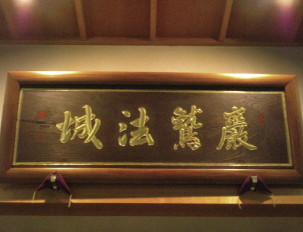 巖鷲法城